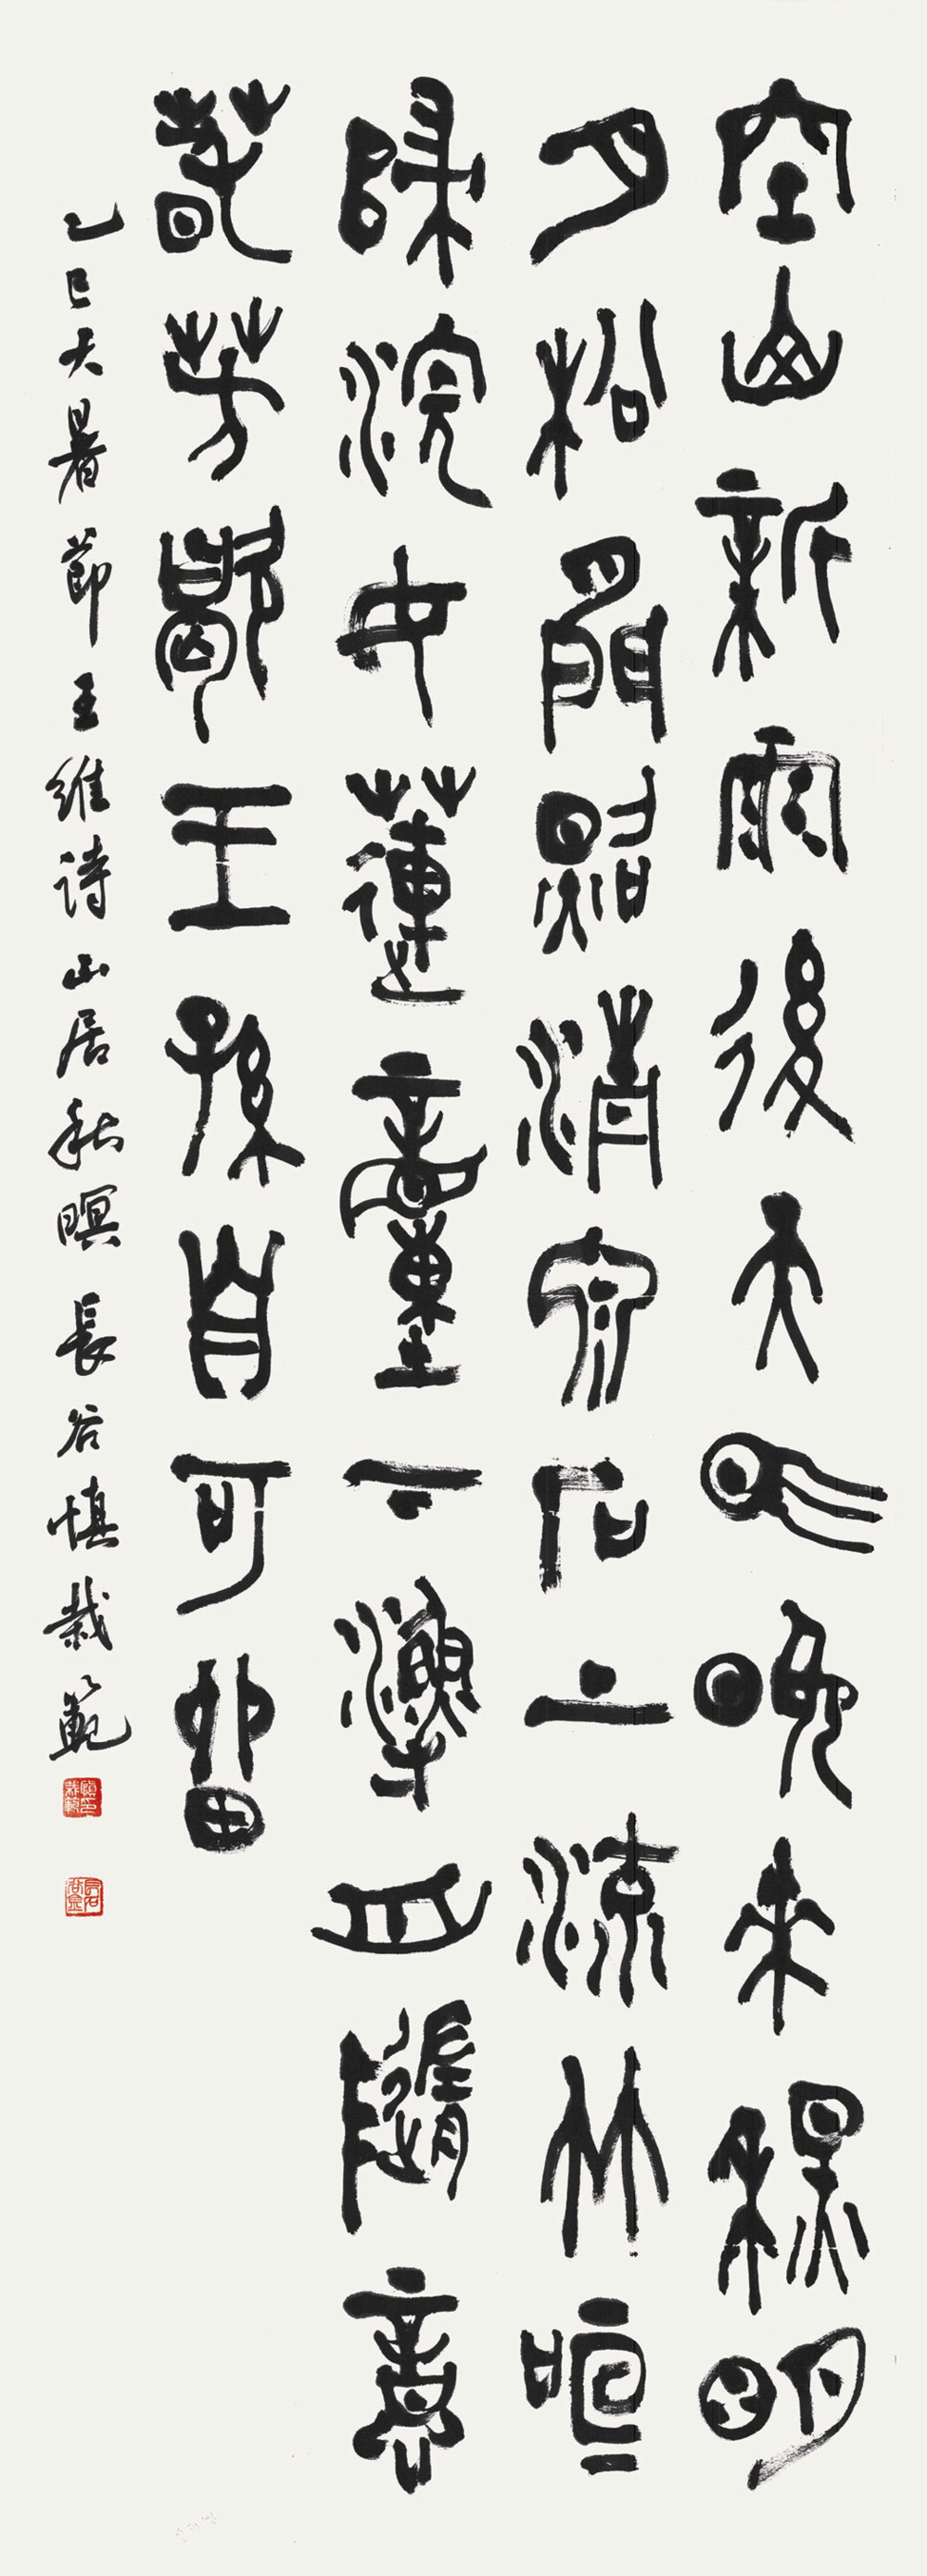 空山新雨後天氣晚來秋明
月松間照清泉石上流竹喧
歸浣女蓮動下漁舟隨意
春芳歇王孫自可留
乙巳大暑節王維詩山居秋暝 長谷慎栽範